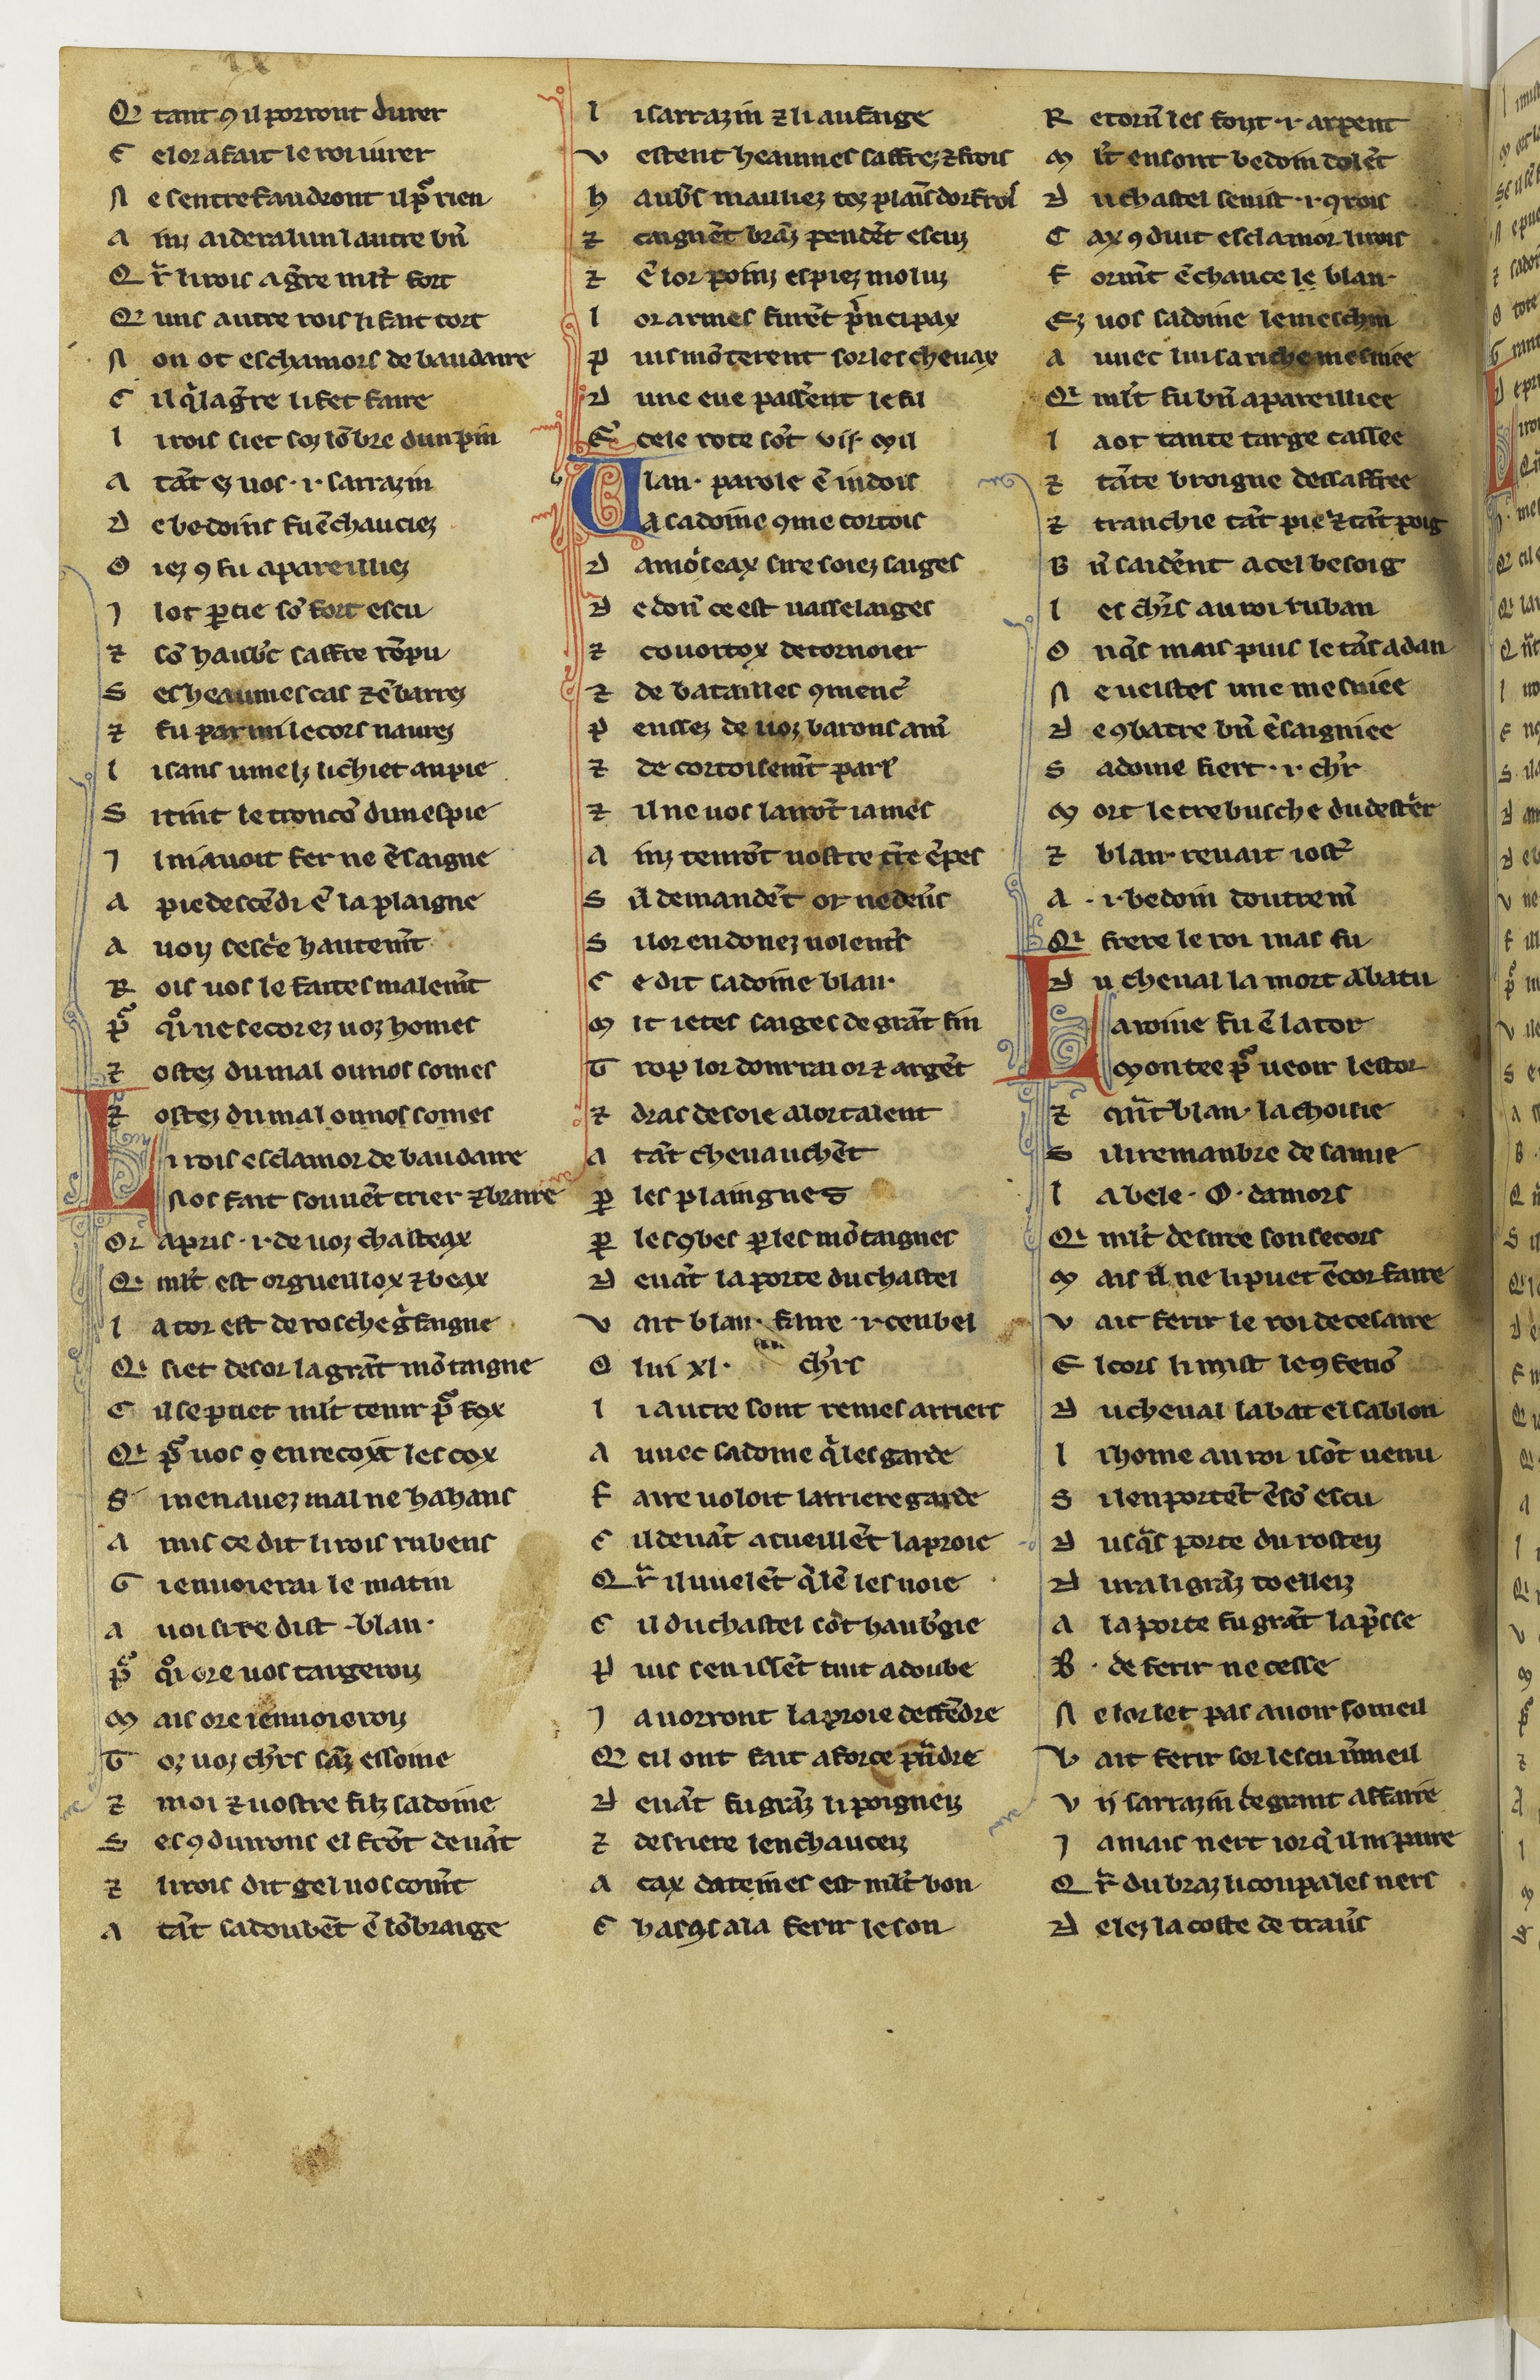 Q tant ꝯ il porront durer
C e lor a fait le roi iurer
N e sentrefaudront il pͦ rien
A inz aidera lun lautre bn̄
Q r̄ li rois a gͬre ml̄t fort
Q uns autre rois li fait tort
N on ot esclamors de baudaire
C il q̍ la gͬre li fet faire
L i rois siet soz lōbre dun pin
A tāt ez uos .i. sarrazin
D e bedoins fu ēchauciez
O iez ꝯ fu apareilliez
I l ot ꝑcie sō fort escu
⁊ sō haub̄c saffre rōpu
S es heaumes cas ⁊ ēbarrez
⁊ fu parmi le cors naurez
L i sans umelz li chiet au pie
S i tint le troncō dun espie
I l ni auoit fer ne ēsaigne
A pie descēdi ē la plaigne
A uoy sescͥe hautem̄t
R ois uos le faites malem̄t
Pͦ qͦi ne secorez uoz homes
⁊ ostez du mal ou nos somes
⁊ ostez du mal ou nos somes
L i rois esclamor de baudaire
N os fait souuēt crier ⁊ braire
Or a pris .i. de uoz chasteax
Q ml̄t est orgueillox ⁊ beax
L a tor est de rosche gͥfaigne
Q siet desor la grāt mōtaigne
C il se puet ml̄t tenir pͦ fox
Q pͦ uos ꝯ en recoȳt les cox
S i nen auez mal ne hahans
A mis ce dit li rois rubens
G i enuoierai le matin
A uoi sire dist .blan.
Pͦ qͦi ore uos targeroiz
M ais ore i enuoieroiz
T oz uoz ch̄rs sāz essoine
⁊ moi ⁊ uostre filz sadoine
S es ꝯduirons el frōt deuāt
⁊ li rois dit gel uos com̄t
A tāt sadoubēt ē lōbraige
L i sarrazin ⁊ li aufaige
V estent heaumes saffrez ⁊ frois
H aub̄s mailliez toz plais dorfroȋ
⁊ caignēt brāz pendēt escuz
⁊ ē lor poinz espiez moluz
L or armes furēt pͥncipax
P uis mōterent sor les cheuax
D une eue passent le fil
Eͥ cele rote sōt vii. mil
Blan. parole ē indois
A sadoine ꝯme cortois
D amoͥseax sire soiez saiges
D e don̄ ce est uasselaiges
⁊ couoitox de tornoier
⁊ de batailles ꝯmenc̄
P ensez de uoz barons am̄
⁊ de cortoisem̄t parl̄
⁊ il ne uos lairōt iames
A inz tenrōt uostre t̄re ē pes
S il demandēt or ne den̄s
S i lor en donez uolent̄s
C e dit sadoine blan.
M lt ietes saiges de grāt sin
T rop lor donrai or ⁊ argēt
⁊ dras de soie a lor talent
A tāt cheuauchēt
ꝑ les plaingnes
ꝑ les ꝯbes ꝑ les mōtaignes
D euāt la porte du chastel
V ait blan. faire .i. cenbel
O lui xl. ch̄rs
L i autre sont remes arriers
A uuec sadoine q̍ les garde
F aire uoloit larrieregarde
C il deuāt acueillēt la proie
Q r̄ il uuelēt q̍ lē les uoie
C il du chastel sōt haub̄gie
P uis sen issēt tuit adoube
I a uorront la proie deffēdre
Q cil ont fait a force pͬndre
D euāt fu grāz li poigneiz
⁊ derriere lenchauceiz
A cax dateines est ml̄t bon
C hascūs ala ferir le son
R etorn̄ les font .i. arpent
M l̄t en sont bedoin dolēt
D u chastel senist .i. ꝯrois
C ax ꝯduit esclamor li rois
F orm̄t ēchauce le blan.
Ez uos sadoine le meschin
A uuec lui sa riche mesniee
Q ml̄t fu bn̄ apareilliee
L a ot tante targe cassee
⁊ tāte broigne dessaffree
⁊ tranchie tāt pie ⁊ tāt poig
B n̄ saidēnt a cel besoig
L es ch̄rs au roi ruban
O nq̄s mais puis le tās adan
N e ueistes une mesniee
D e ꝯbatre bn̄ ēsaigniee
S adoine fiert .i. ch̄r
M ort le trebusche du destͥer
⁊ blan. reuait iost̄
A .i. bedoin doutrem̄
Q frere le roi mas fu
D u cheual la mort abatu
L aroine fu ē la tor
M ontee pͦ ueoir lestor
⁊ qn̄t blan. la choisie
S i li remanbre de samie
L a bele .O. damors
Q ml̄t desirre son secors
M ais il ne li puet ēcor faire
V ait ferir le roi de cesaire
E l cors li mist le ꝯfenō
D u cheual labat el sablon
L i home au roi i sōt uenu
S i len portēt ē sō escu
D usq̄s porte du rosteiz
D ura li grāz toelleiz
A la porte fu grāt la pͬsse
B . de ferir ne cesse
N e lor let pas auoir someil
V ait ferir sor lescu v̄meil
V ij sarrazin de grant affaire
I amais nert ior q̍l nipaire
Q r̄ du braz li coupa les ners
D elez la coste de trau̍s